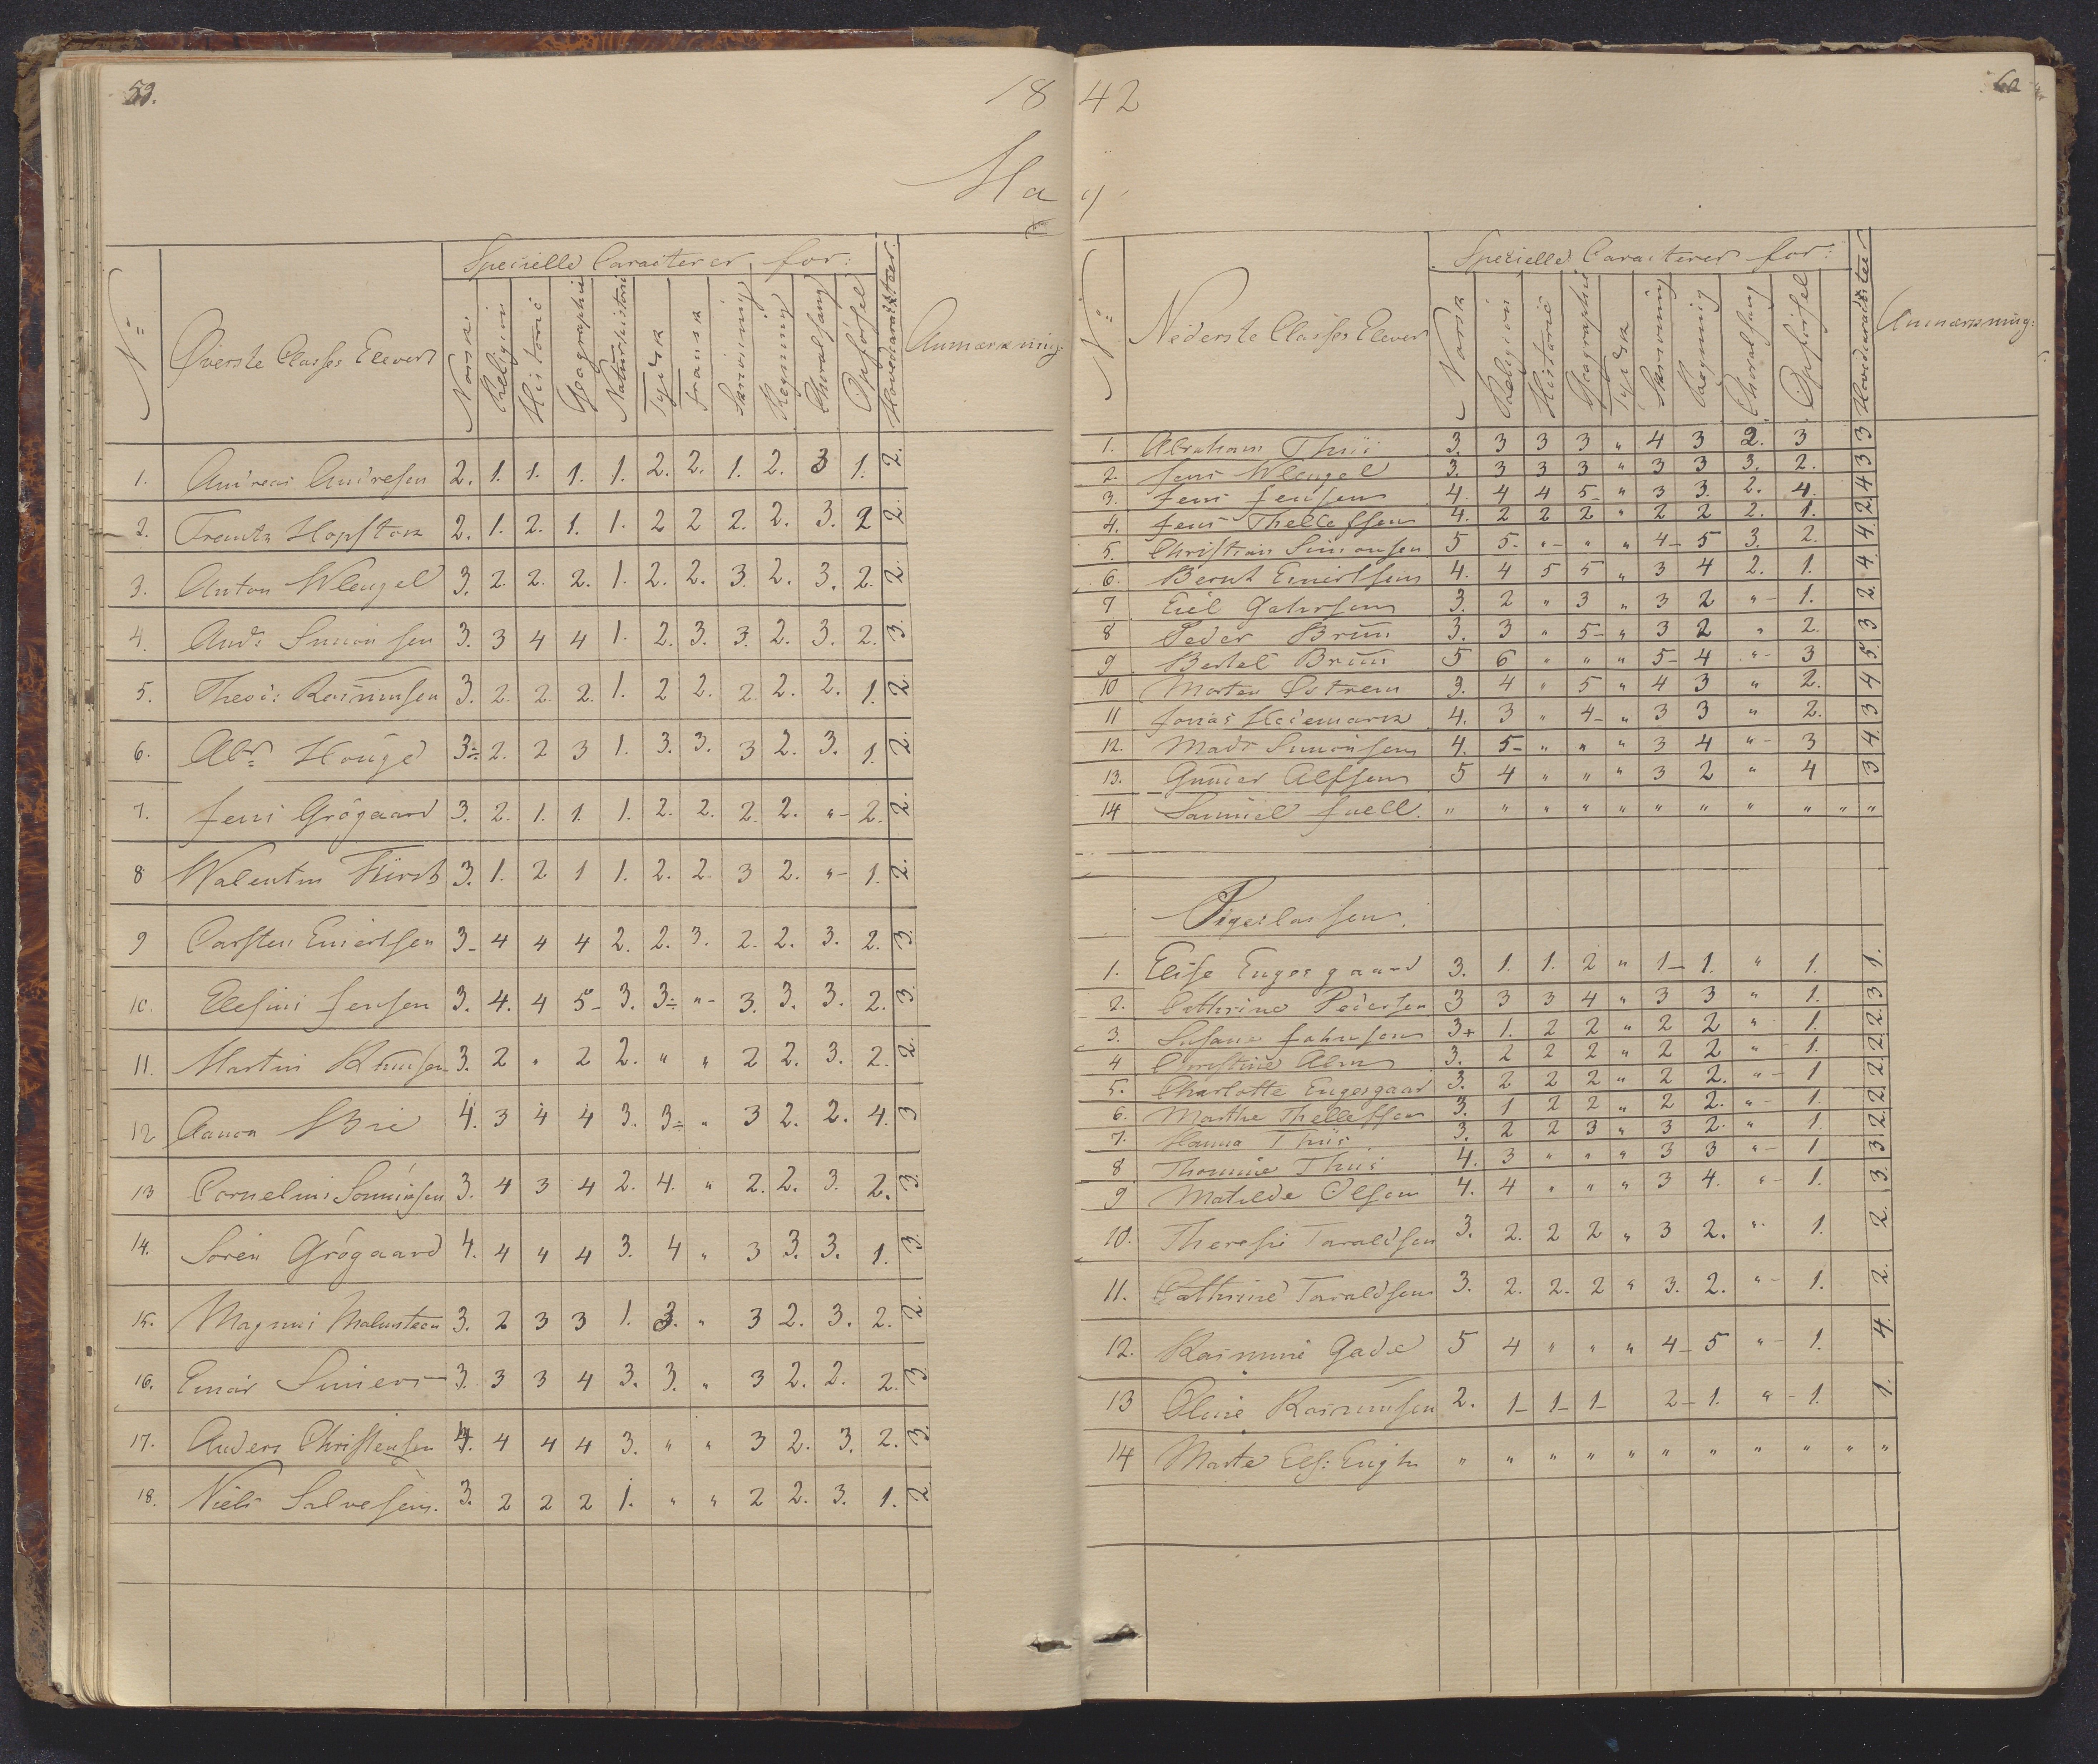 59.
18
Ma
Specielle Caracterer for:
Nº Øverste Classes Elever Norsk. Religion Historie Geographie Naturhistorie Tydsk Fransk Skrivning Regning Choralsang Opførsel Hovedcarakteer. Anmærkning:
1. Andreas Andresen 2. 1. 1. 1. 1. 2. 2. 1. 2. 3 1. 2.
2. Frantz Hopstock 2. 1. 2. 1. 1. 2 2 2. 2. 3. 2 2.
3. Anton Wleugel 3. 2. 2. 2. 1. 2. 2. 3. 2. 3. 2. 2.
4. And: Simonsen 3. 3 4 4 1. 2. 3. 3. 2. 3. 2. 3.
5. Theod: Rasmussen 3. 2. 2. 2. 1. 2 2. 2. 2. 2. 1. 2.
6. Abr. Houge 3÷ 2. 2 3 1. 3. 3. 3 2. 3. 1. 2.
7. Jens Grögaard 3. 2. 1. 1. 1. 2. 2. 2. 2. "- 2. 2.
8 Walentin Fürst 3. 1. 2 1 1. 2. 2. 3 2. "- 1. 2.
9 Carsten Einertsen 3- 4 4 4 2. 2. 3. 2. 2. 3. 2. 3.
10. Elesius Jensen 3. 4. 4 5- 3. 3÷ "- 3. 3. 3. 2. 3.
11. Martin Knudsen 3. 2 " 2 2. " " 2 2. 3. 2. 2.
12 Aanon Bie 4. 3 4 4 3. 3÷ " 3 2. 2. 4. 3
13 Cornelius Sonnicsen 3. 4 3 4 2. 4. " 2. 2. 3. 2. 3.
14. Soren Grögaard 4. 4 4 4 3. 4 " 3 3. 3. 1. 3.
15. Magnus Malmsteen 3. 2 3 3 1. 3. " 3 2. 3. 2. 2.
16. Einar Siniers 3. 3 3 4 3. 3. " 3 2. 2. 2. 3.
17. Anders Christensen 4. 4 4 4 3. " " 3 2. 3. 2. 3.
18. Niels Salvesen. 3. 2 2 2 1. " " 2 2. 3. 1. 2.
42
60
y
Specielle Caracterer for:
Nº Nederste Classes Elever Norsk Religion Historie Geographie Tydsk Skrivning Regning Choralsang Opførsel Hovedcarakteer Anmærkning:
1. Abraham Thiis 3. 3 3 3 " 4 3 2. 3 3
2. Jens Wleugel 3. 3 3 3 " 3 3 3. 2. 3
3. Jens Jensen 4. 4 4 5- " 3 3. 2. 4. 4
4. Jens Thellefsen 4. 2 2 2 " 2 2 2. 1. 2.
5. Christian Simonsen 5 5- "- " " 4- 5 3. 2. 4.
6. Bernt Einertsen 4. 4 5 5 " 3 4 2. 1. 4.
7 Eiel Gahrsen 3. 2 " 3 " 3 2 "- 1. 2.
8 Peder Bruun 3. 3 " 5- " 3 2 " 2. 3
9 Bertel Bruun 5 6 " " " 5- 4 "- 3 5.
10 Morten Østrem 3. 4 " 5 " 4 3 " 2. 4
11 Jonas Hedemark 4. 3 " 4- " 3 3 " 2. 3
12. Mads Simonsen 4. 5- " " " 3 4 "- 3 4.
13. Gunder Alfsen 5 4 " " " 3 2 " 4 3
14 Samuel Juell. " " " " " " " " " " "
Pigeclassen.
1. Elise Engesgaard 3. 1. 1. 2 " 1- 1. " 1. 1.
2. Cathrine Pedersen 3 3 3 4 " 3 3 " 1. 3
3. Susane Johnsen 3+ 1. 2 2 " 2 2 " 1. 2.
4 Christine Alm 3. 2 2 2 " 2 2 "- 1. 2.
5. Charlotte Engesgaard 3. 2 2 2 " 2 2. "- 1 2.
6. Marthe Thelleffsen 3. 1 2 2 " 2 2. "- 1. 2.
7. Hanna Thiis 3. 2 2 3 " 3 2. " 1. 2.
8 Thomine Thiis 4. 3 " " " 3 3 "- 1 3
9 Matilde Olsen 4. 4 " " " 3 4. "- 1. 3.
10. Therese Taraldsen 3. 2. 2 2 " 3 2. " 1. 2.
11. Cathrine Taraldsen 3. 2. 2. 2 " 3. 2. "- 1. 2.
12. Rasmine Gade 5 4 " " " 4- 5 "- 1. 4.
13 Oline Rasmussen 2. 1- 1- 1- 2- 1. "- 1. 1.
14 Marte Els: Eugh " " " " " " " " " " "